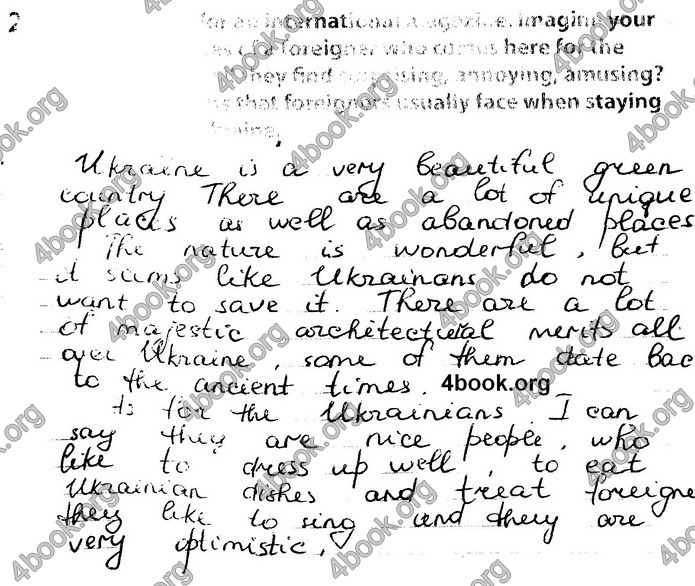 2
for an international magazine. Imagine your
of a foreigner who comes here for the
they find surprising, annoying, amusing?
that foreigners usually face when staying
Ukraine is a very beautiful green
country There are a lot of unique
places as well as abandoned places
The nature is wonderful, but
it seems like Ukrainans do not
want to save it. There are a lot
of majestic architectural merits all
over Ukraine, some of them date bac
to the ancient times. 4book.org
As for the Ukrainians. I can
say they are nice people, who
like to dress up well, to eat
Ukrainian dishes and treat foreigne
they like to sing and they are
very optimistic.